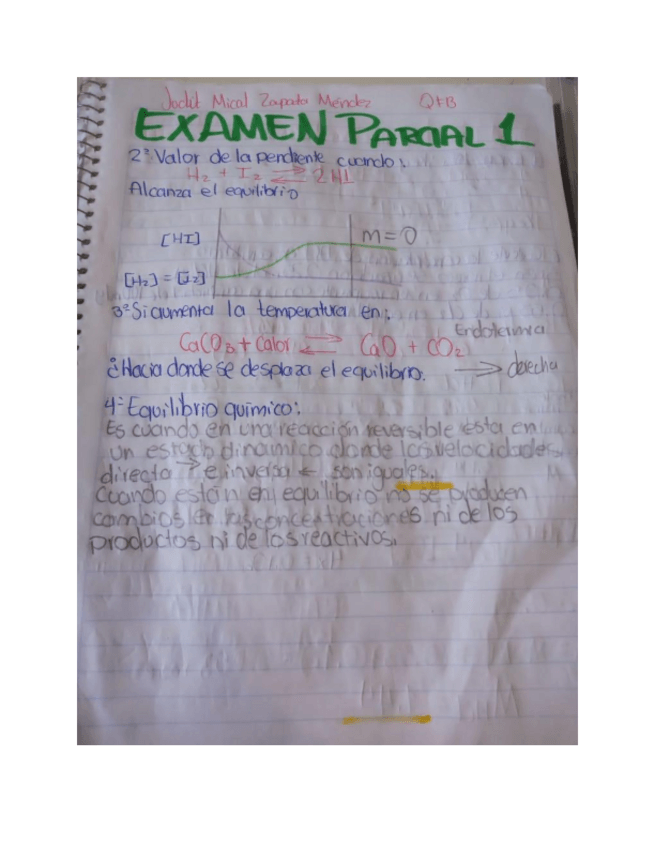 Jadit Mical Zapata Méndez QFB
EXAMEN PARCIAL 1
2º Valor de la pendiente cuando:
H₂ + I₂ ⇌ 2HI
Alcanza el equilibrio
[HI] m=0
[H₂] = [I₂]
3º Si aumenta la temperatura en:
Endotermica
CaCO₃ + Calor ⇌ CaO + CO₂
¿Hacia donde se desplaza el equilibrio. → derecha
4º Equilibrio químico:
Es cuando en una reacción reversible esta en
un estado dinamico donde las velocidades
directa → e inversa ← son iguales.
Cuando están en equilibrio no se producen
cambios en las concentraciones ni de los
productos ni de los reactivos.